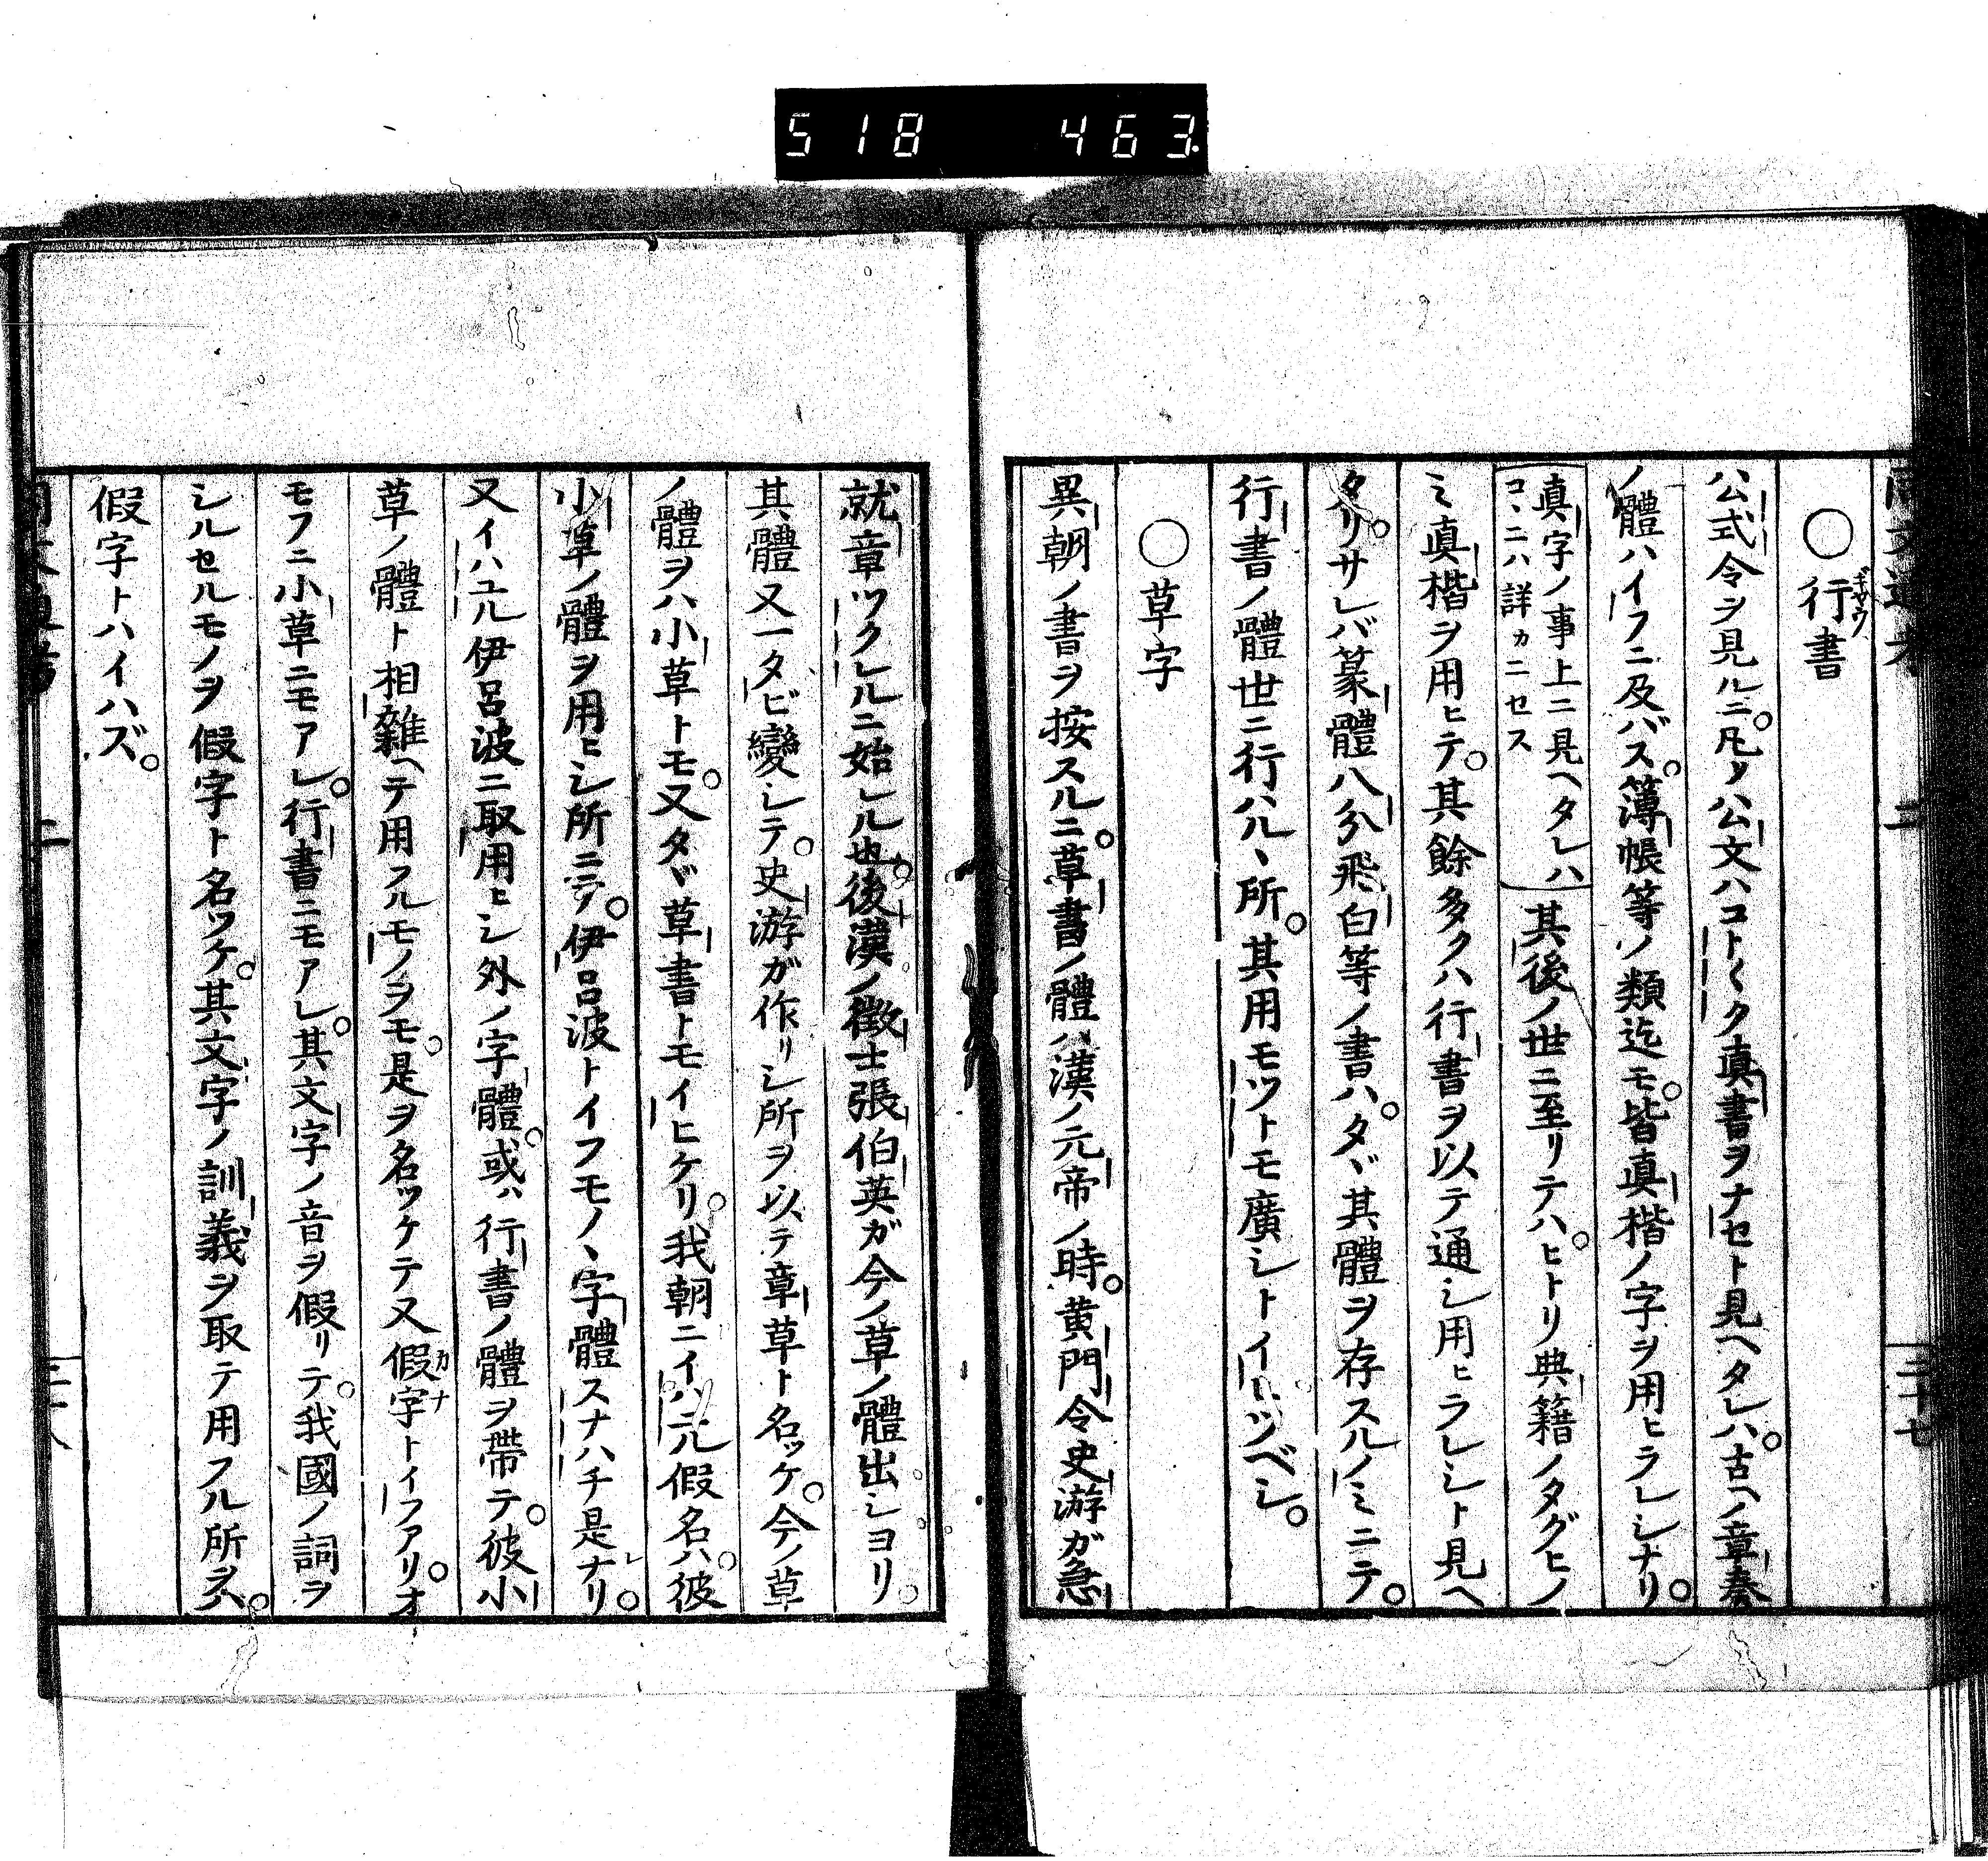 518 463
○行書
公式令ヲ見ルニ。凡ソ公文ハコト〱ク真書ヲナセト見ヘタレハ。古ヘノ章奏
ノ體ハイフニ及バス。簿帳等ノ類迄モ。皆真楷ノ字ヲ用ヒラレシナリ。
真字ノ事上ニ見ヘタレハ
コヽニハ詳カニセス
其後ノ世ニ至リテハ。ヒトリ典籍ノタグヒノ
ミ真楷ヲ用ヒテ。其餘多クハ行書ヲ以テ通シ用ヒラレシト見ヘ
タリ。サレバ篆體八分飛白等ノ書ハ。タヾ其體ヲ存スルノミニテ。
行書ノ體世ニ行ハルヽ所。其用モツトモ廣シトイヒツベシ。
○草字
異朝ノ書ヲ按スルニ。草書ノ體ハ漢ノ元帝ノ時。黄門令史游ガ急
就章ツクレルニ始レル也。後漢ノ徴士張伯英ガ今ノ草ノ體出シヨリ。
其體又一タビ變シテ。史游ガ作リシ所ヲ以テ章草ト名ツケ。今ノ草
ノ體ヲハ小草トモ。又タヾ草書トモイヒケリ。我朝ニイハユル假名ハ。彼
小草ノ體ヲ用ヒシ所ニテ。伊呂波トイフモノヽ字體スナハチ是ナリ。
又イハユル伊呂波ニ取用ヒシ外ノ字體。或ハ行書ノ體ヲ帶テ。彼小
草ノ體ト相雜ヘテ用フルモノヲモ。是ヲ名ツケテ又假字トイフアリ。オ
モフニ小草ニモアレ。行書ニモアレ。其文字ノ音ヲ假リテ。我國ノ詞ヲ
シルセルモノヲ假字ト名ツケ。其文字ノ訓義ヲ取テ用フル所ヲハ。
假字トハイハズ。